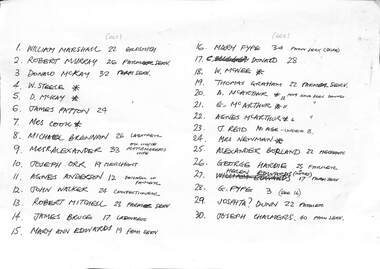 1. WILLIAM MARSHALL 22
2. ROBERT MURRAY 26 FARM SERV.
3. DONALD McKAY 32 FARM SERV.
4. W. STEELE *
5. D. McKAY *
6. JAMES PATTON 24
7. MRS COOK *
8. MICHAEL BRENNAN 26 LABOURER
9. MRS ALEXANDER 33
10. JOSEPH ORR 19 MERCHANT
11. AGNES ANDERSON 12
12. JOHN WALKER 24
13. ROBERT MITCHELL 23 FARMER SERV.
14. JAMES BRUCE 17 LABOURER
15. MARY ANN EDWARDS 19 FARM SERV
16. MARY PYPE 30 FARM SERV
17. DONALD 28
18. W. McNEE *
19. THOMAS GRAHAM 22 FARMER SERV.
20. A. McARTHUR *
21. G. McARTHUR *
22. AGNES McARTHUR *
23. J. REID NO AGE
24. MRS NEWMAN *
25. ALEXANDER BORLAND 22
26. GEORGE HARDIE 25 FARMER
HELEN EDWARDS
27. WILLIAM EDWARDS 17 FARM SERV
28. G. PYPE 3 (SEE 16)
29. JOSHTA? DUNN 22 FARMER
30. JOSEPH CHALMERS. 40 FARM SERV.